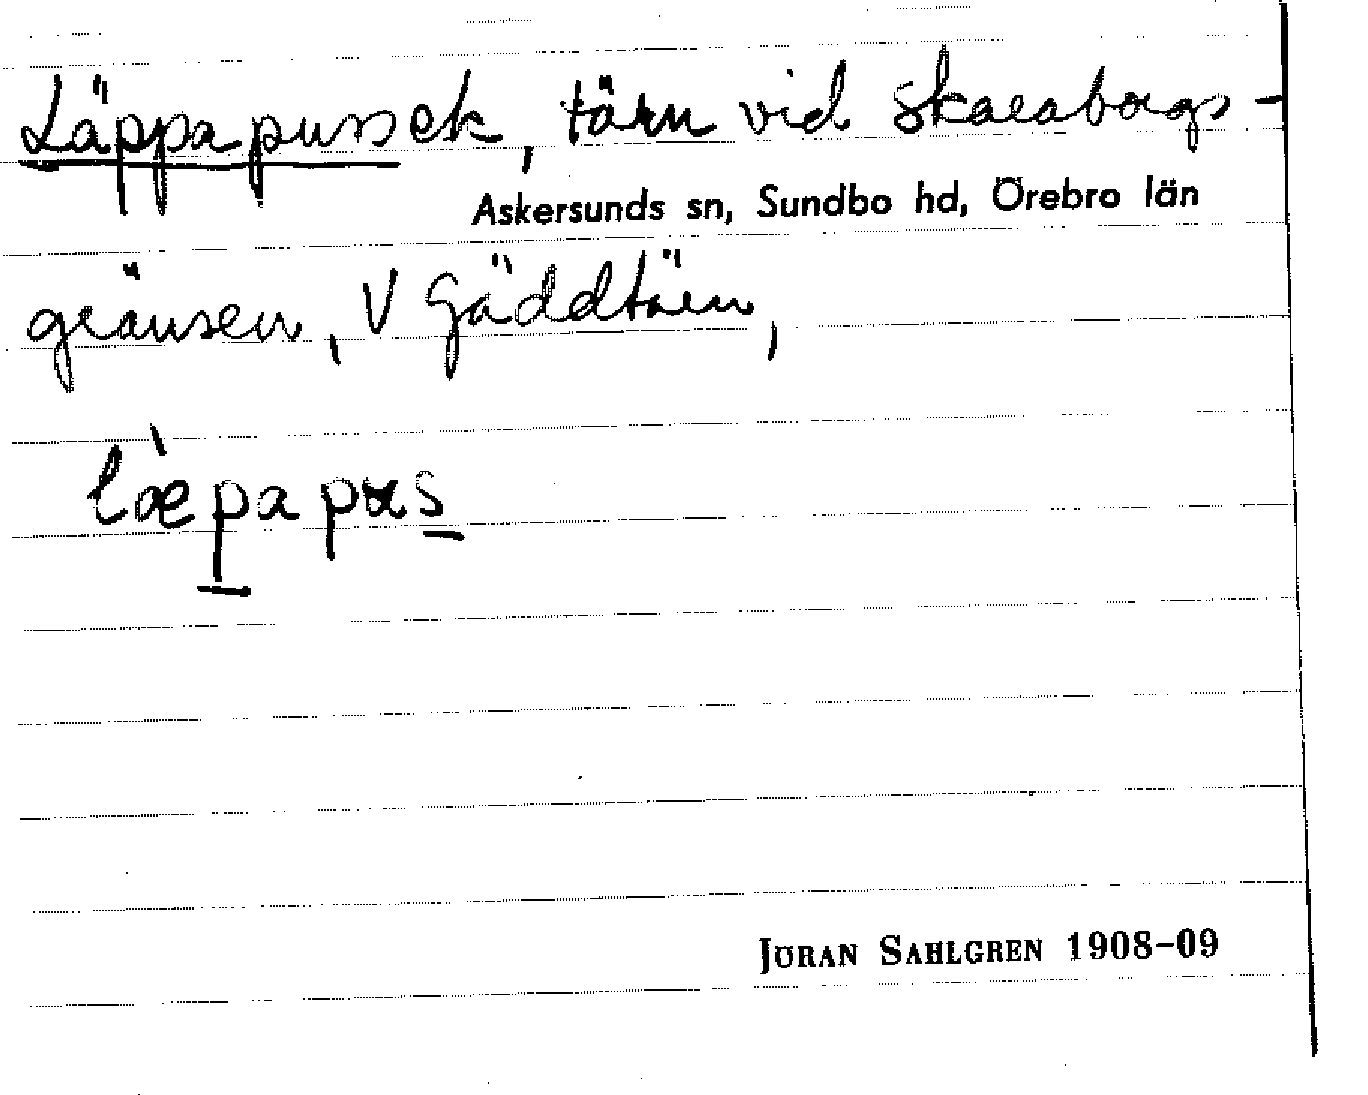 Läppapuss ek, tärn vid Skaraborgs-
Askersunds sn, Sundbo hd, Örebro län
gränsen, V Gäddtärn,
læpapus
JÖRAN SAHLGREN 1908-09